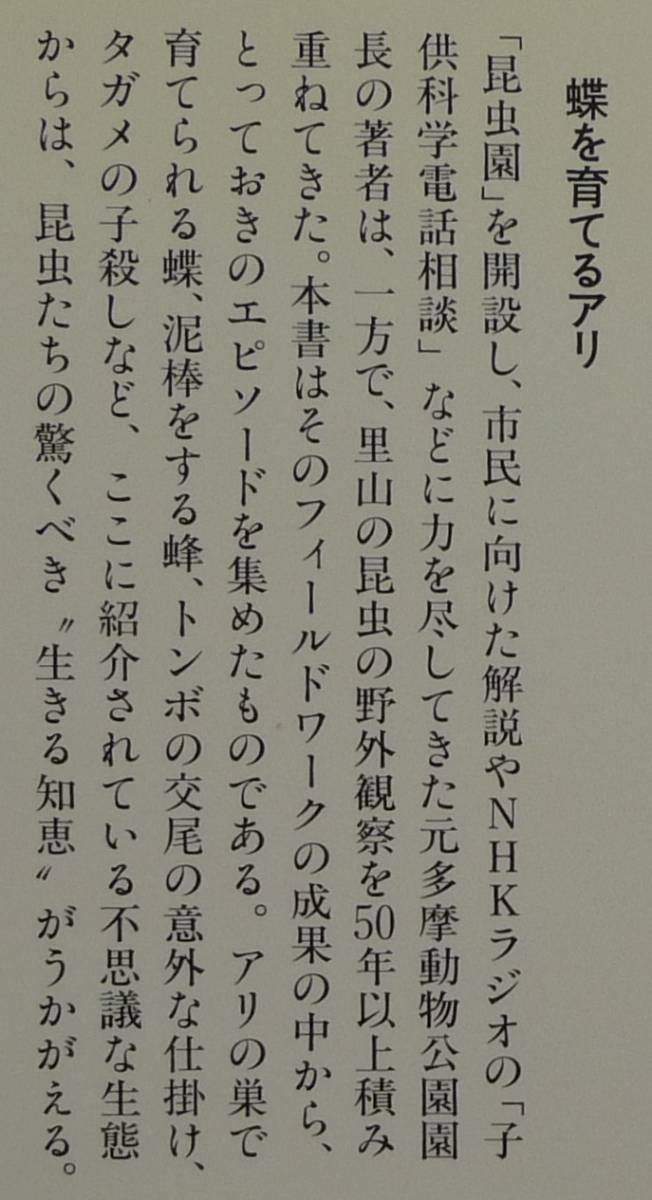 蝶を育てるアリ
「昆虫園」を開設し、市民に向けた解説やNHKラジオの「子
供科学電話相談」などに力を尽してきた元多摩動物公園園
長の著者は、一方で、里山の昆虫の野外観察を50年以上積み
重ねてきた。本書はそのフィールドワークの成果の中から、
とっておきのエピソードを集めたものである。アリの巣で
育てられる蝶、泥棒をする蜂、トンボの交尾の意外な仕掛け、
タガメの子殺しなど、ここに紹介されている不思議な生態
からは、昆虫たちの驚くべき〝生きる知恵〟がうかがえる。